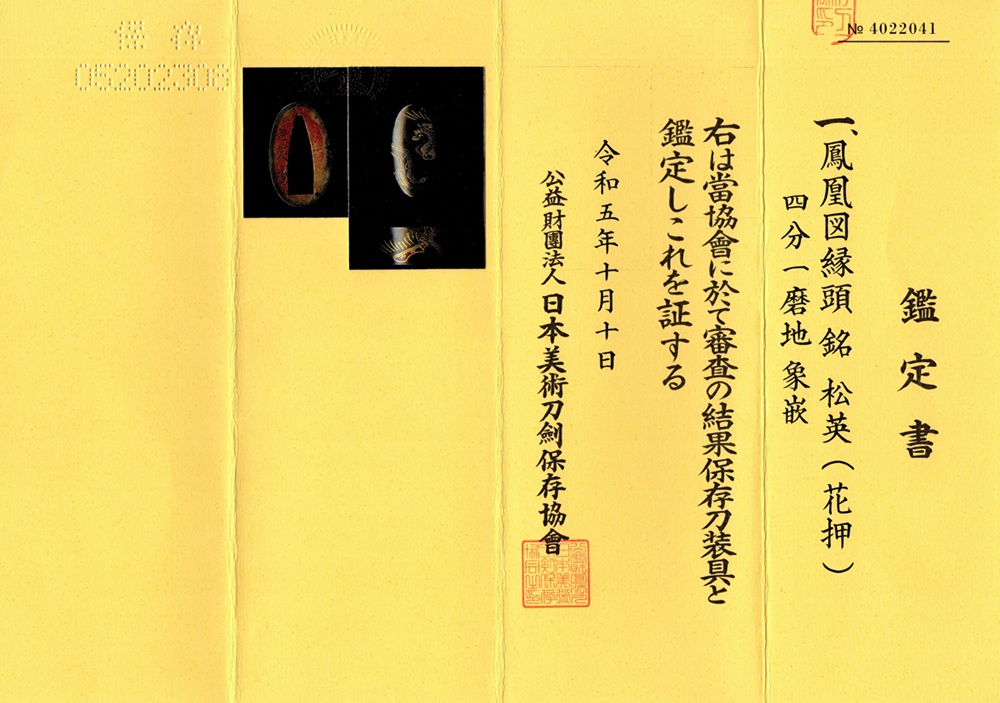 № 4022041
鑑定書
一、鳳凰図縁頭 銘 松英(花押)
四分一磨地 象嵌
右は當協會に於て審査の結果保存刀装具と
鑑定しこれを証する
令和五年十月十日
公益財團法人 日本美術刀劍保存協會
保存
05202308